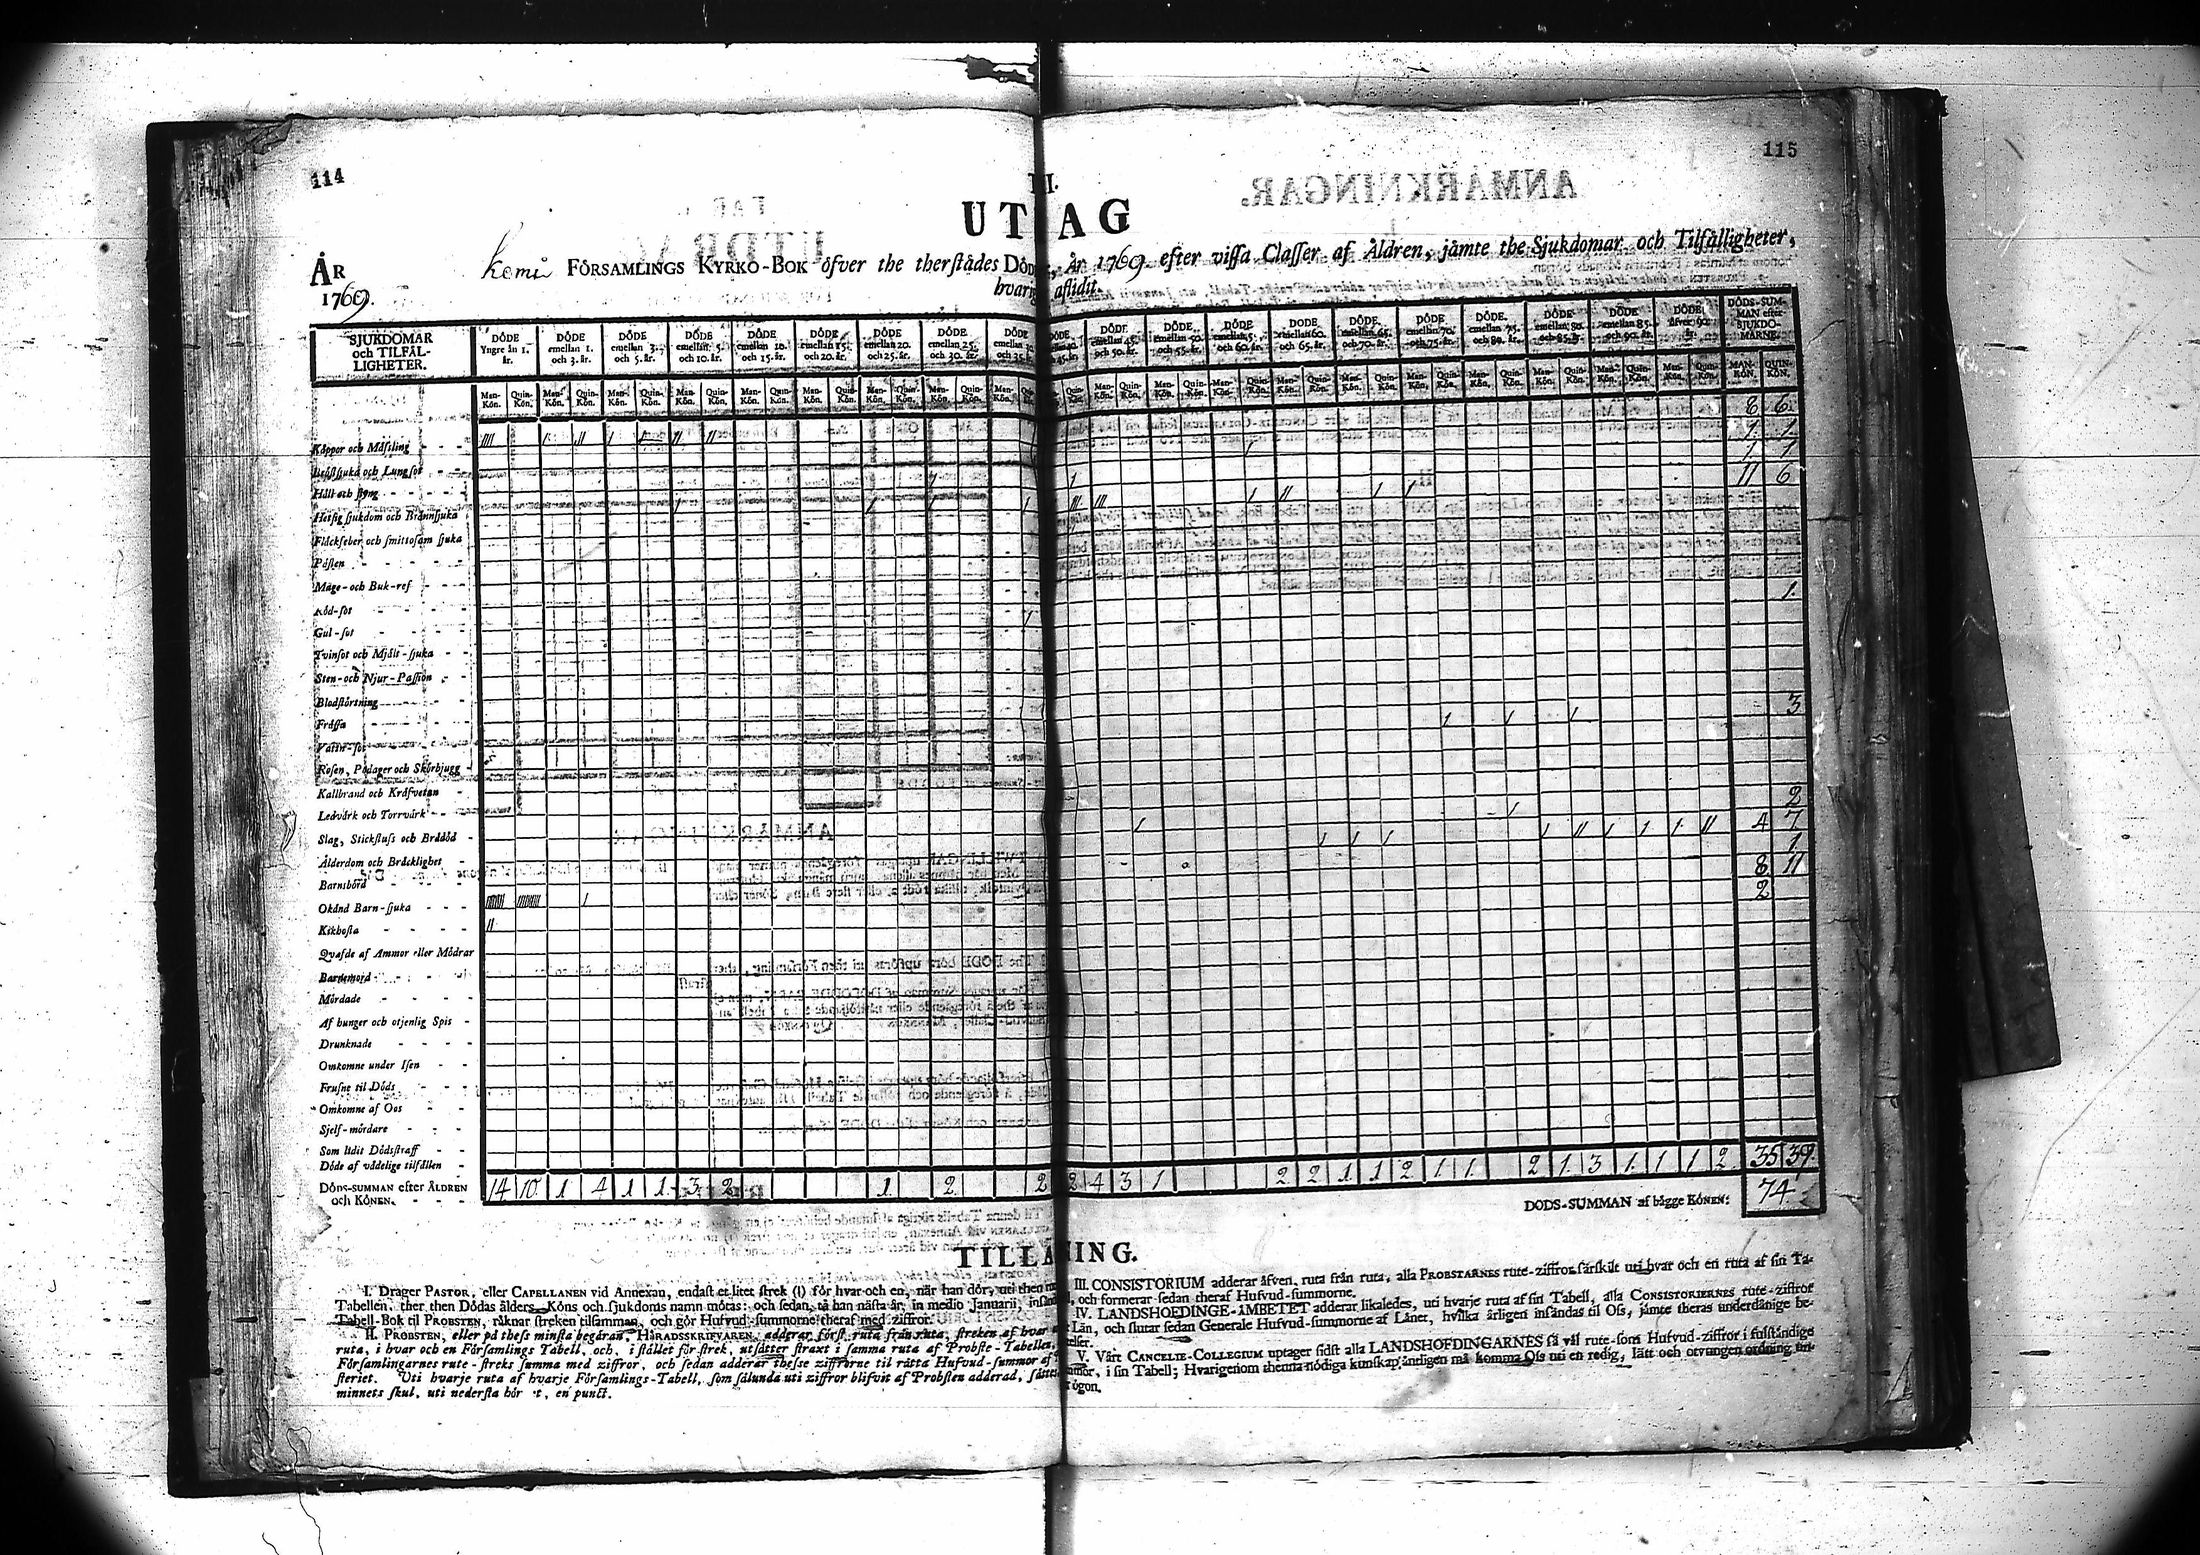 114
115
III.
UT AG
ANMÄRKNINGAR.
ÅR
1769.
Kemi FÖRSAMLINGS KYRKO-BOK öfver the therstädes DÖDE, År 1769 efter vissa Classer af Åldren, jämte the Sjukdomar och Tilfälligheter,
hvaraf aflidit.
SJUKDOMAR och TILFÄLLIGHETER.
DÖDE Yngre än 1. år.
DÖDE emellan 1. och 3. år.
DÖDE emellan 3. och 5. år.
DÖDE emellan 5. och 10. år.
DÖDE emellan 10. och 15. år.
DÖDE emellan 15. och 20. år.
DÖDE emellan 20. och 25. år.
DÖDE emellan 25. och 30. år.
DÖDE emellan och 35. år.
DÖDE och 45. år.
DÖDE emellan 45. och 50. år.
DÖDE emellan 50. och 55. år.
DÖDE emellan 55. och 60. år.
DÖDE emellan 60. och 65. år.
DÖDE emellan 65. och 70. år.
DÖDE emellan 70. och 75. år.
DÖDE emellan 75. och 80. år.
DÖDE emellan 80. och 85. år.
DÖDE emellan 85. och 90. år.
DÖDE öfver 90. år.
DÖDS-SUMMAN efter SJUKDOMARNE.
Man-Kön. Quin-Kön.
Koppor och Mässling - - - IIII I II I I II II 8 6.
Bröstsjuka och Lungsot - - I 1. 1.
Håll och styng - - - - I I 1 1
Hetsig sjukdom och Brännsjuka I I I I III III I II I I 11 6
Fläckfeber och smittosam sjuka
Påsten - - - - -
Mage- och Buk-ref - - -
Röd-sot - - - -
Gul-sot - - - - I 1.
Tvinsot och Mjält-sjuka - -
Sten- och Njur-Passion - -
Blodstörtning - - - -
Frässa - - - -
Vattu-sot - - - - I I I 3
Rosen, Podager och Skörbjugg -
Kallbrand och Kräfvetan -
Ledvärk och Torrvärk - -
Slag, Stickfluss och Brådöd - I 2
Ålderdom och Bräcklighet - I I I I II I I I II 4 7
Barnsbörd - - - - I 1.
Okänd Barn-sjuka - - - I 8 11
Kikhosta - - - - II 2
Qvafde af Ammor eller Mödrar
Barnemord - - - -
Mördade - - - -
Af hunger och otjenlig Spis -
Drunknade - - - -
Omkomne under Isen - -
Frusne til Döds - - -
Omkomne af Oos - - -
Sjelf-mördare - - -
Som lidit Dödsstraff - -
Döde af vådelige tilfällen -
DÖDS-SUMMAN efter ÅLDREN och KÖNEN. 14 10 1 4 1 1 3 2 1. 2 2 2 4 3 1 2 2 1 1 2 1 1. 2 1. 3 1. 1 1 2 35 39.
DÖDS-SUMMAN af bägge KÖNEN: 74.
TILL NING.
I. Drager PASTOR, eller CAPELLANEN vid Annexan, endast et litet strek (l) för hvar och en, när han dör, uti then
Tabellen, ther then Dödas ålders, Köns och sjukdoms namn mötas: och sedan, tå han nästa år, in medio Januarii, insän
Tabell-Bok til PROBSTEN, räknar streken tilsamman, och gör Hufvud-summorne theraf med ziffror.
II. PROBSTEN, eller på thess minsta begäran, HÄRADSSKRIFVAREN, adderar först ruta från ruta, streken af hvar
ruta, i hvar och en Församlings Tabell, och, i stället för strek, utsätter straxt i samma ruta af Probste-Tabellen,
Församlingarnes rute-streks summa med ziffror, och sedan adderar thesse ziffrorne til rätta Hufvud-summor af
steriet. Uti hvarje ruta af hvarje Församlings-Tabell, som sålunda uti ziffror blifvit af Probsten adderad, sättes
minnets skul, uti nedersta hör t, en punct.
III. CONSISTORIUM adderar äfven, ruta från ruta, alla PROBSTARNES rute-ziffror särskilt uti hvar och en ruta af sin Ta-
, och formerar sedan theraf Hufvud-summorne.
IV. LANDSHOEDINGE-ÄMBETET adderar likaledes, uti hvarje ruta af sin Tabell, alla CONSISTORIERNES rute-ziffror
Län, och slutar sedan Generale Hufvud-summorne af Länet, hvilka årligen insändas til Oss, jämte theras underdånige be-
telser.
V. Vårt CANCELIE-COLLEGIUM uptager sidst alla LANDSHÖFDINGARNES så väl rute-som Hufvud-ziffror i fulständige
, i sin Tabell; Hvarigenom thenna nödiga kunskap ändteligen må komma Oss uti en redig, lätt och otvungen ordning un-
ögon.